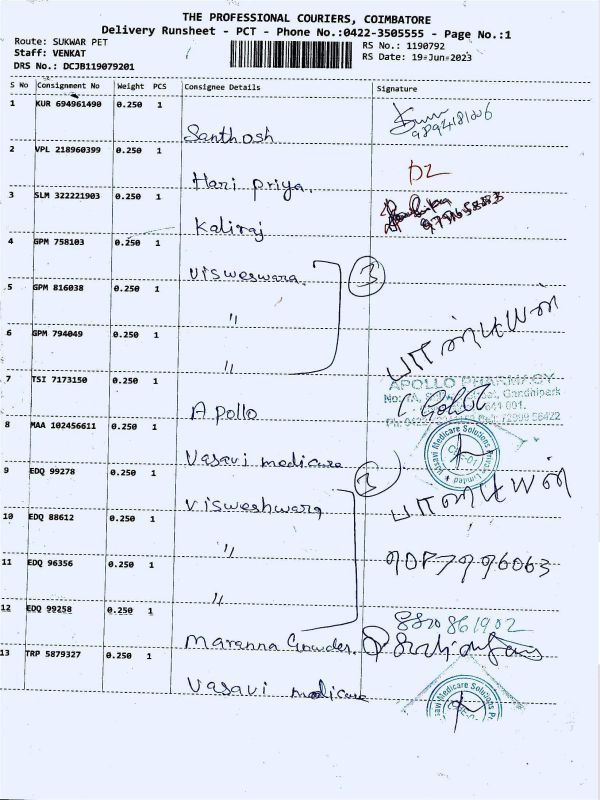 THE PROFESSIONAL COURIERS, COIMBATORE
Delivery Runsheet - PCT - Phone No.:0422-3505555 - Page No.:1
Route: SUKWAR PET
Staff: VENKAT
DRS No.: DCJB119079201
RS No.: 1190792
RS Date: 19-Jun-2023
S No Consignment No Weight PCS Consignee Details Signature
1 KUR 694961490 0.250 1 Santhosh
2 VPL 218960399 0.250 1 Hari priya.
3 SLM 322221903 0.250 1 Kaliraj
4 GPM 758103 0.250 1 Visweswara. 3
5 GPM 816038 0.250 1 "
6 GPM 794049 0.250 1 " பாண்டியன்
7 TSI 7173150 0.250 1 Apollo APOLLO PHARMACY
Gandhipark
8 MAA 102456611 0.250 1 Vasavi medicare Vasavi Medicare Solutions Private Limited
9 EDQ 99278 0.250 1 Visweshwara பாண்டியன்
10 EDQ 88612 0.250 1 "
11 EDQ 96356 0.250 1 "
12 EDQ 99258 0.250 1 Maranna Gowder. 8870861902
13 TRP 5879327 0.250 1 Vasavi medicare Medicare Solutions